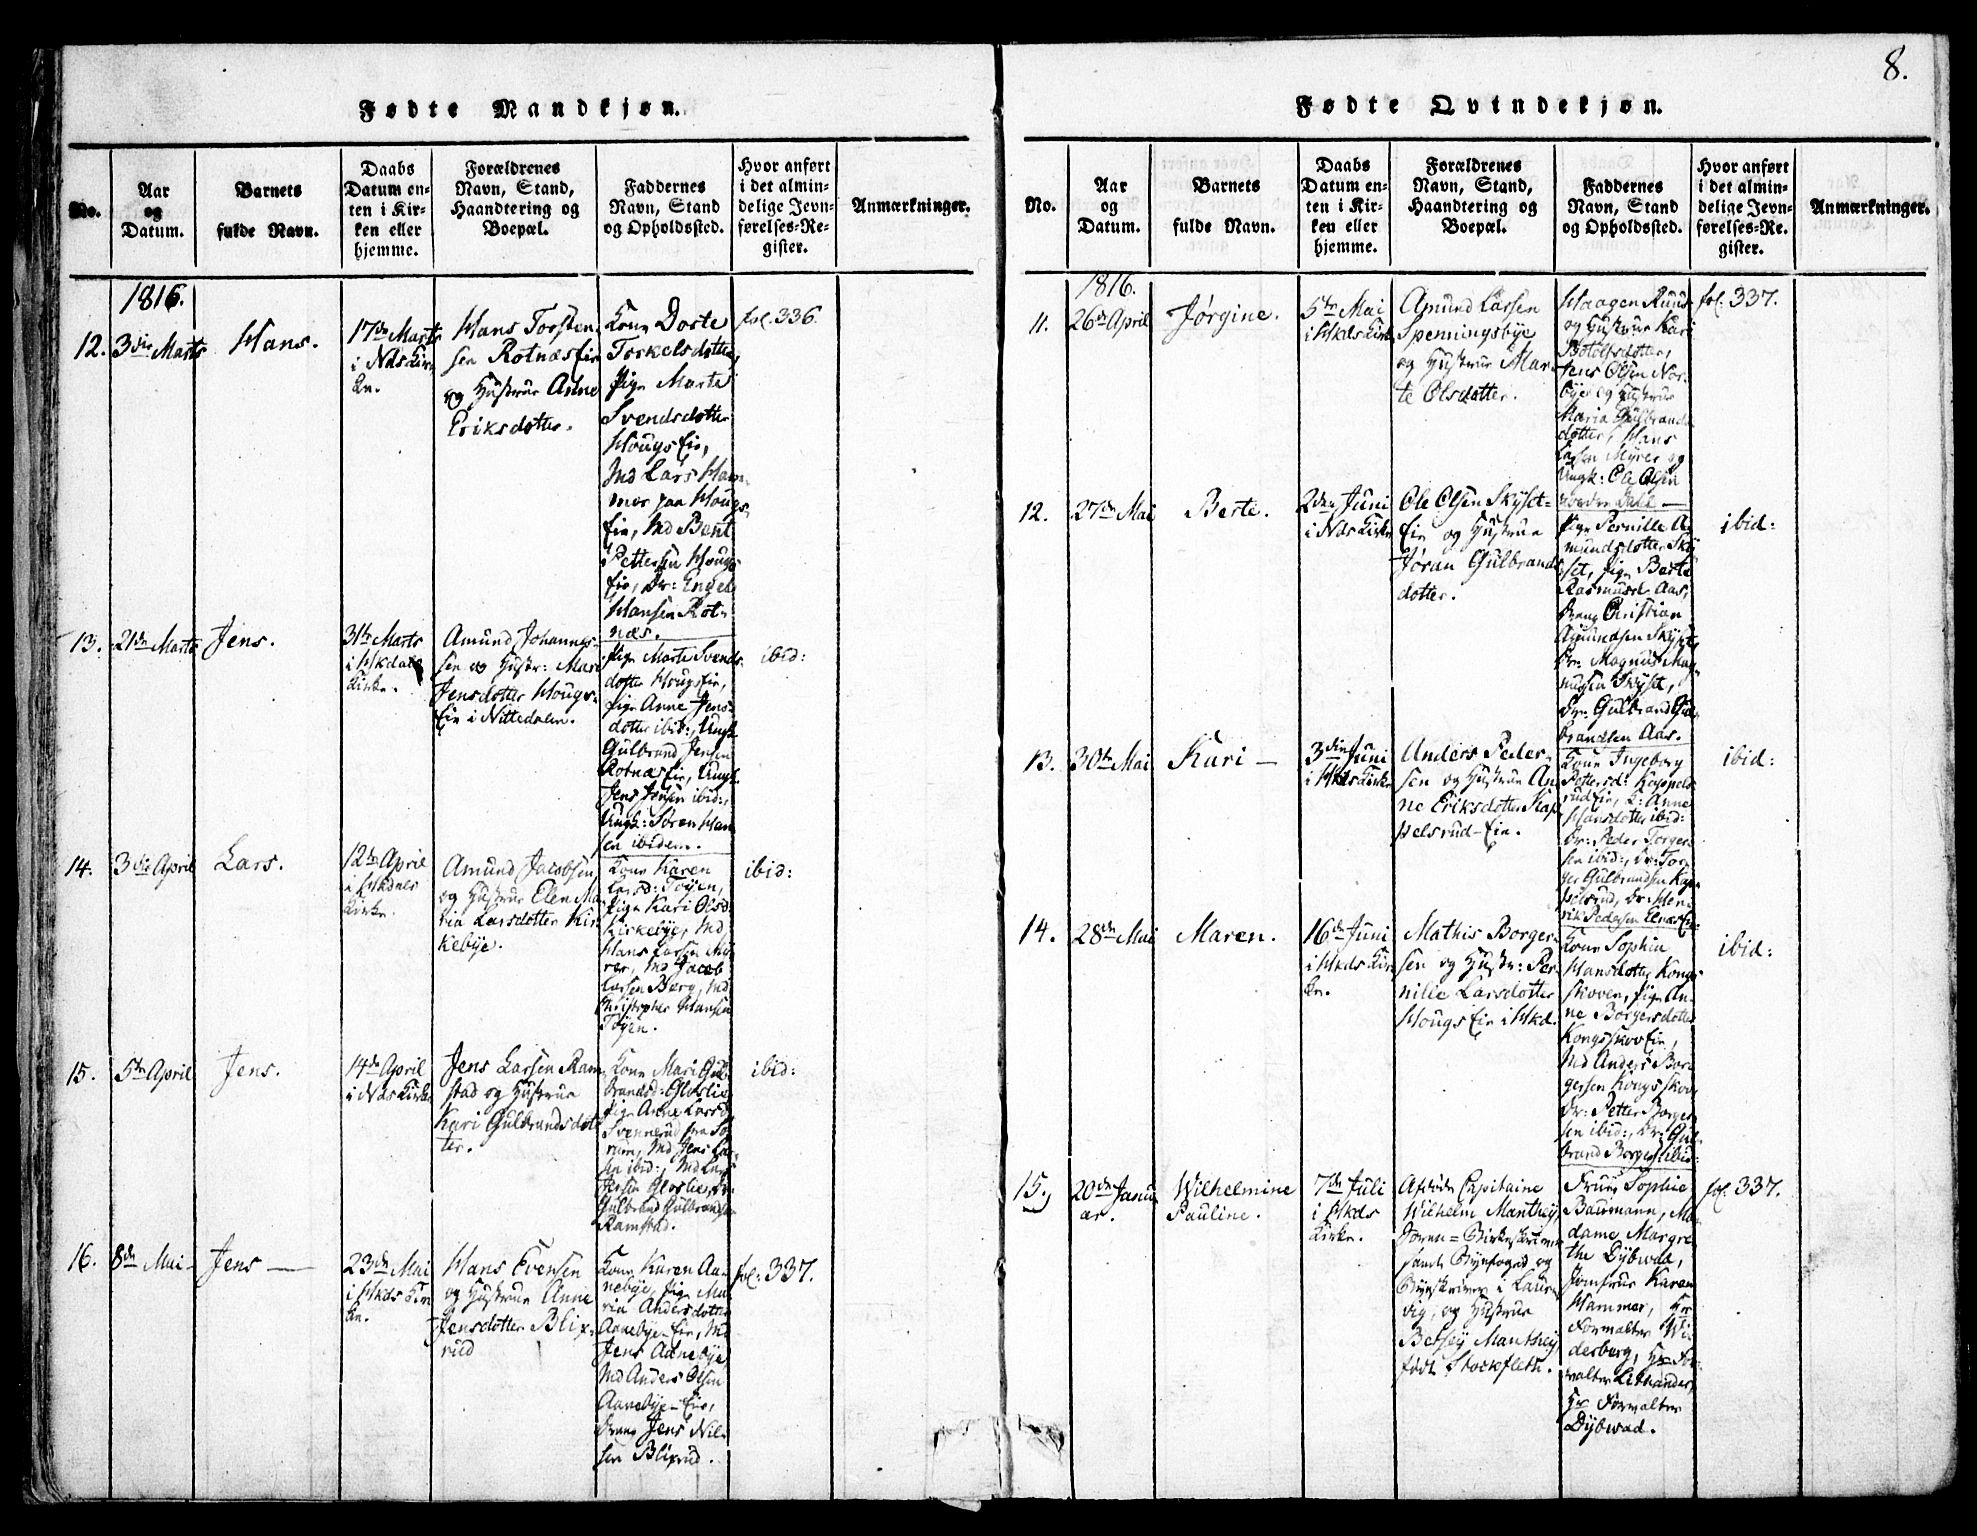 8.
Fødte Mandkjøn.
No.
Aar
og
Datum.
Barnets
fulde Navn.
Daabs
Datum en-
ten i Kir-
ken eller
hjemme.
Forældrenes
Navn, Stand,
Haandtering og
Boepæl.
Faddernes
Navn, Stand
og Opholdssted.
Hvor anført
i det almin-
delige Jevn-
førelses-Re-
gister.
Anmærkninger.
1816.
12.
3die Marts
Hans.
17de Marts
i Nds Kir-
ke.
Hans Torsten-
sen Rotnæs Eie
og Hustrue Anne
Eriksdotter.
Kone Dorte
Torkelsdotter,
Pige Marte
Svendsdotter
Hougs Eie,
Md Lars Ham-
mer paa Hougs-
Eie, Md Bent
Pettersen Hougs
Eie, Dr: Engel
Hansen Rot-
næs.
fol. 336
13.
21de Marts
Jens.
31te Marts
i Hkdals
Kirke.
Amund Johannes-
sen og Hustr: Mari
Jensdotter Hougs-
Eie i Nittedalen.
Pige Marte Svends-
dotter Hougs Eie,
Pige Anne Jens-
dotter ibid:, Ungk.
Gulbrand Jensen
Rotnæs Eie, Ungk.
Jens Jensen ibid:,
Ungk: Søren Han-
sen ibidem.
ibid:
14.
3die April
Lars.
12te April
i Hkdales
Kirke.
Amund Jacobsen
og Hustrue Elen Ma-
ria Larsdotter Kir-
kebye.
Kone Karen
Larsd: Tøyen,
Pige Kari Olsd:
Kirkebye, Md
Hans Larsen My-
rer, Md Jacob
Larsen Berg, Md
Christopher Hansen
Tøyen.
ibid:
15.
5te April
Jens.
14de April
i Nds Kirke
Jens Larsen Ram-
stad og Hustrue
Kari Gulbrandsdot-
ter.
Kone Mari Gul-
brandsd: Gloslie
Pige Anne Larsd:
Svennerud fra Sø-
rum, Md Jens Lar-
sen ibid:, Md Lars
Jensen Gloslie, Dr:
Gulbrand Gulbrandsen
Ramstad.
ibid:
16.
8de Mai
Jens —
23de Mai
i Hkds Kir-
ke.
Hans Evensen
og Hustrue Anne
Jensdotter Blix-
rud
Kone Karen Aa-
nebye, Pige Ma-
ria Andersdotter
Aanebye-Eie, Md
Jens Aanebye
Md Anders Olsen
Aanebye-Eie,
Dreng Jens Nil-
sen Blixrud.
fol: 337.
Fødte Qvindekjøn.
No.
Aar
og
Datum.
Barnets
fulde Navn.
Daabs
Datum en-
ten i Kir-
ken eller
hjemme.
Forældrenes
Navn, Stand,
Haandtering og
Boepæl.
Faddernes
Navn, Stand
og Opholdssted.
Hvor anført
i det almin-
delige Jevn-
førelses-Re-
gister.
Anmærkninger.
1816.
11.
26de April
Jørgine.
5te Mai
i Hkds Kirke
Amund Larsen
Spenningsbye
og Hustrue Mar-
te Olsdotter.
Haagen Ruus
og Hustrue Kari
Botolfsdotter,
Jens Olsen Nor-
bye og Hustrue
Maria Gulbrands-
dotter, Hans
Larsen Myrer og
Ungk: Ole Olsen
Dahl —
fol. 337.
12.
27de Mai
Berte.
2den Juni
i Nds Kirke
Ole Olsen Skyset-
Eie og Hustrue
Jøran Gulbrands-
dotter.
Pige Pernille A-
mundsdotter Sky-
set, Pige Berte
Rasmusd: Aas,
Dreng Christian
Amundsen Skyset,
Dr: Magnus Mag-
nussen Skyset,
Dr: Gulbrand Gul-
brandsen Aas.
ibid:
13.
30te Mai
Kari —
3die Juni
i Hkds Kirke
Anders Peder-
sen og Hustrue An-
ne Eriksdotter Kap-
pelsrud-Eie.
Kone Ingeborg
Pettersd: Kappels-
rud Eie, K: Anne
Hansdotter ibid:
Dr: Peder Torger-
sen ibid:, Dr: Tor-
ger Gulbrandsen Kap-
pelsrud, Dr: Hen-
rik Pedersen Elnæs Eie.
ibid:
14.
28de Mai
Maren.
16de Juni
i Hkds Kir-
ke.
Mathis Borger-
sen og Hustr: Per-
nille Larsdotter
Hougs Eie i Hkd.
Kone Sophia
Hansdotter Kongs-
skoven, Pige An-
ne Borgersdotter
Kongsskov Eie,
Md Anders Bor-
gersen Kongsskov
Dr: Petter Borger-
sen ibid:, Dr: Gul-
brand Borgers. ibid:
ibid:
15.
20de Janu-
ar.
Wilhelmine
Pauline.
7de Juli
i Hkds
Kirke.
Afdøde Capitaine
Wilhelm Manthey,
Soren-Birkeskriver
samt Byefoged og
Byeskriver i Laur-
vig, og Hustrue
Betsey Manthey,
født Stockfleth.
Frue Sophie
Baumann, Ma-
dame Margre-
the Dybwad,
Jomfrue Karen
Hammer, Hr
Forvalter Wi-
derberg, Hr For-
valter Lithander,
Hr Forvalter
Dybwad.
fol. 337.